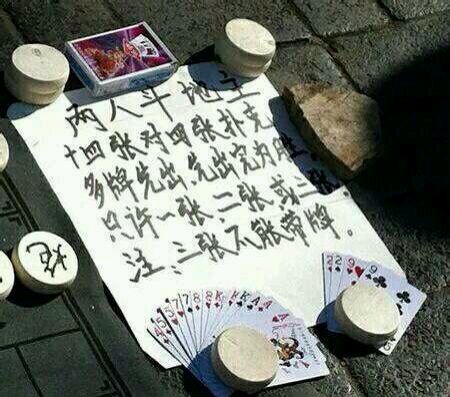 两人斗地主
十四张对四张扑克
多牌先出,先出完为胜.
只许一张、二张或三张
注:三张不能带牌。
炮